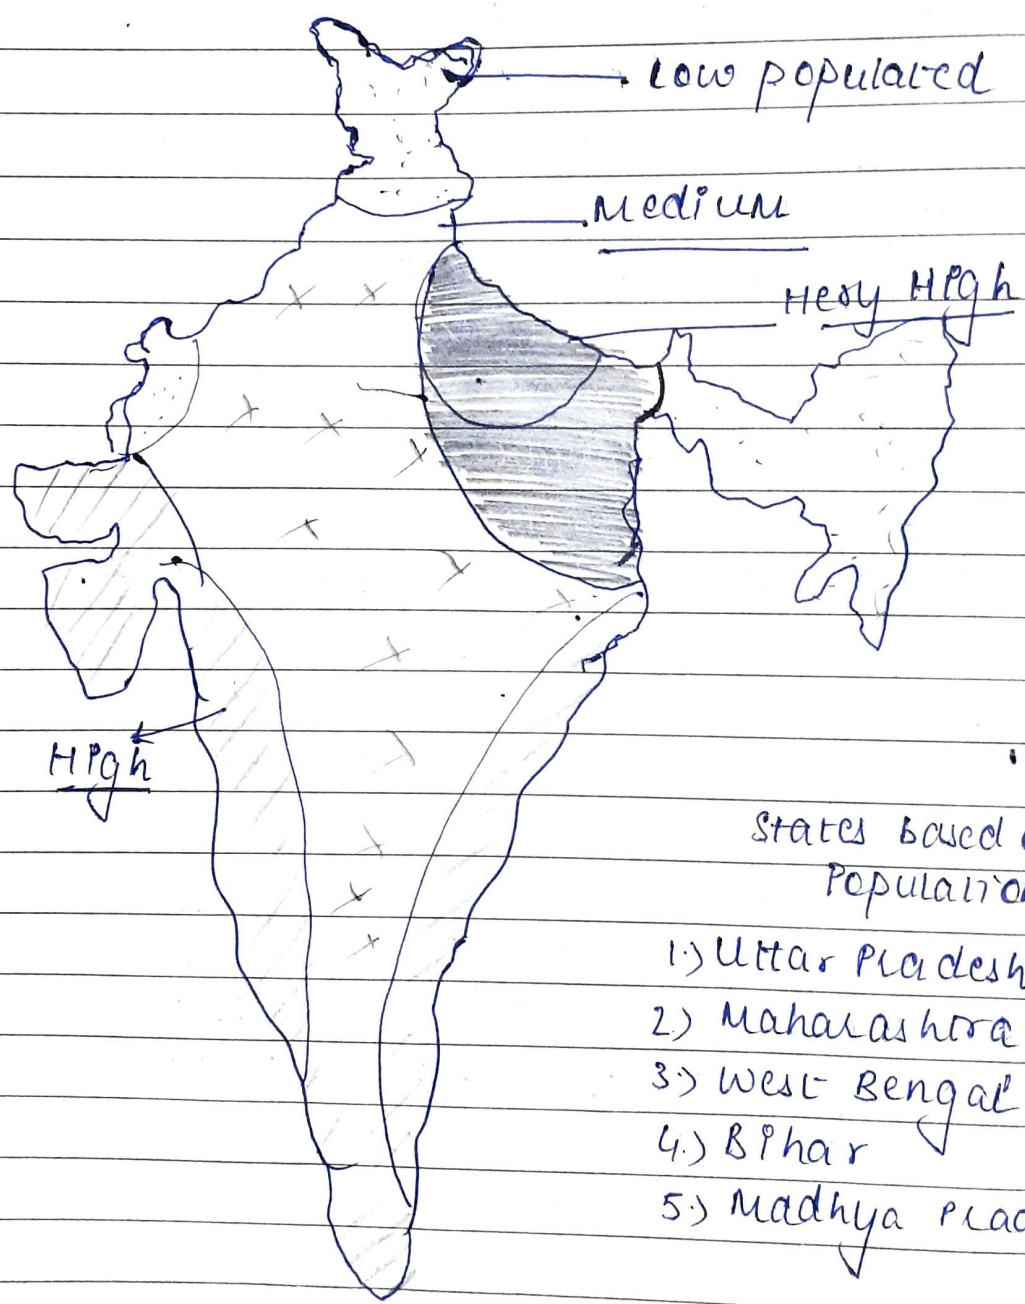 Low populated
Medium
Hery High
High
States Based
Population
1.) Uttar Pradesh
2.) Maharashtra
3.) West Bengal
4.) Bihar
5.) Madhya Prad